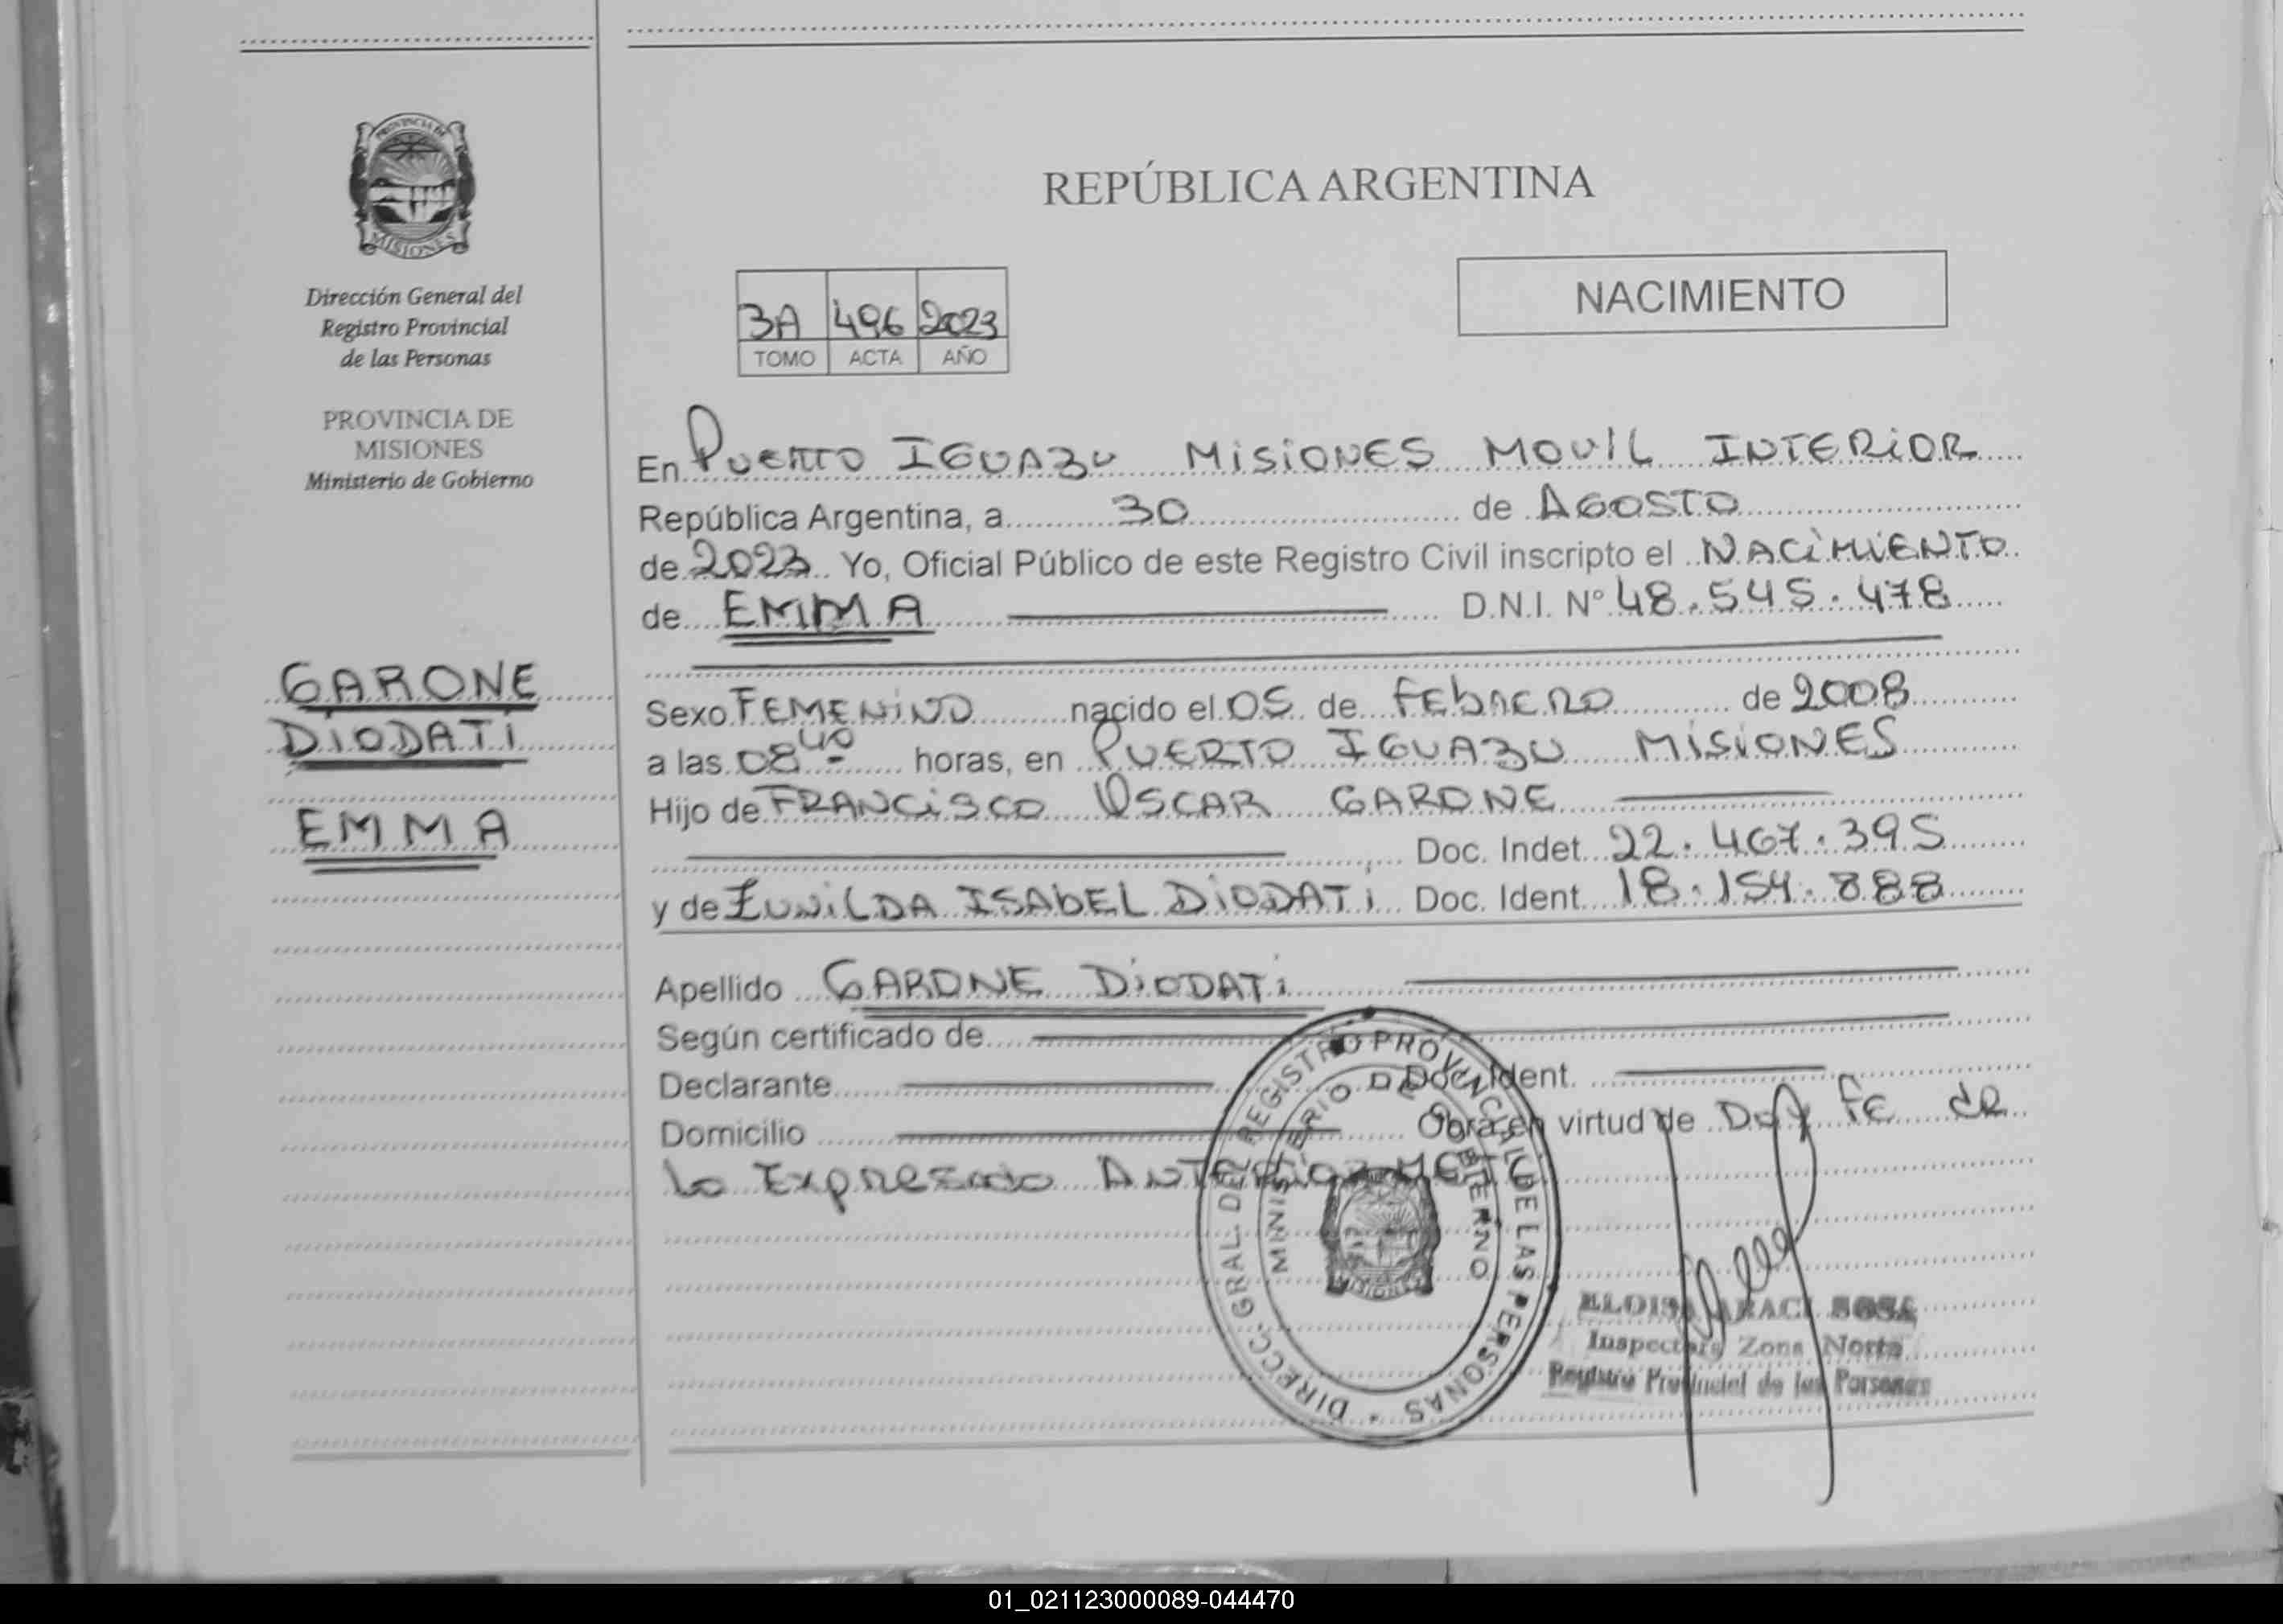 PROVINCIA DE
MISIONES
Dirección General del
Registro Provincial
de las Personas
PROVINCIA DE
MISIONES
Ministerio de Gobierno
GARONE
DIODATI
EMMA
REPÚBLICA ARGENTINA
NACIMIENTO
3A 496 2023
TOMO ACTA AÑO
En PUERTO IGUAZU MISIONES MOVIL INTERIOR
República Argentina, a 30 de AGOSTO
de 2023 Yo, Oficial Público de este Registro Civil inscripto el NACIMIENTO
de EMMA D.N.I. N° 48.545.478
Sexo FEMENINO nacido el 05 de FEbRERO de 2008
a las 08 40 horas, en PUERTO IGUAZU MISIONES
Hijo de FRANCISCO OSCAR GARONE
Doc. Indet. 22.467.395
y de ZUNILDA ISAbEL DIODATI Doc. Ident. 18.154.888
Apellido GARONE DIODATI
Según certificado de
Declarante Doc. Ident.
Domicilio Obra en virtud de Doy fe de
lo Expresado ANTERIORMENTE
DIRECC. GRAL. DEL REGISTRO PROVINCIAL DE LAS PERSONAS
MINISTERIO DE GOBIERNO
MISIONES
ELOISA ARACI SOSA
Inspectora Zona Norte
Registro Provincial de las Personas
01_021123000089-044470